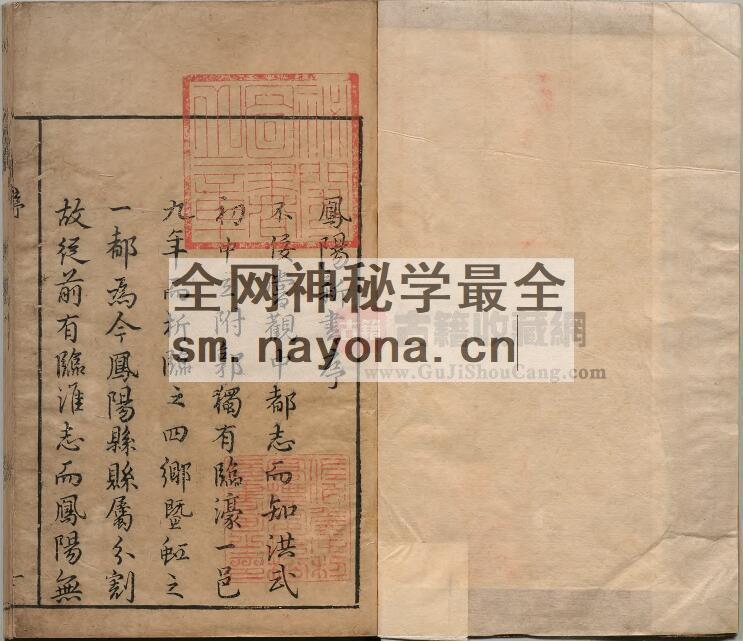 鳳陽新書序
不佞嘗觀中都志而知洪武
初中立附郭獨有臨濠一邑
九年而析臨之四鄉暨虹之
一都為今鳳陽縣縣屬分割
故從前有臨淮志而鳳陽無
序
一
全网神秘学最全
sm.nayona.cn
古籍收藏網
www.GuJiShouCang.com